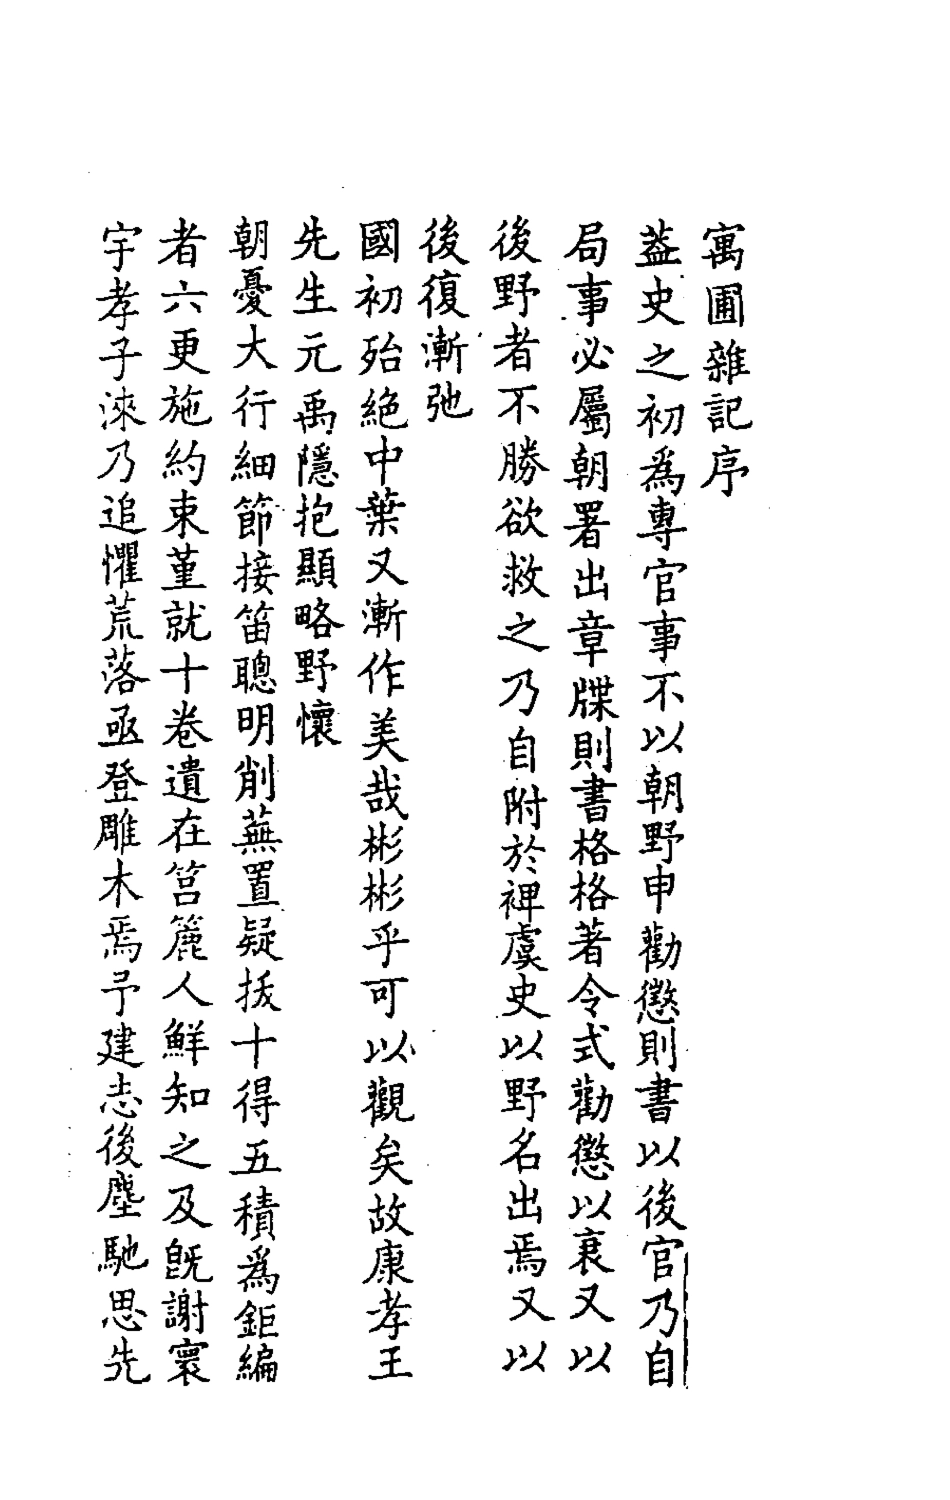 寓圃雜記序
葢史之初為專官事不以朝野申勸懲則書以後官乃自
局事必屬朝署出章牒則書格格著令式勸懲以衰又以
後野者不勝欲救之乃自附於裨虞史以野名出焉又以
後復漸弛
國初殆絶中葉又漸作美哉彬彬乎可以觀矣故康孝王
先生元禹隱抱顯略野懷
朝憂大行細節接笛聰明削蕪置疑括十得五積為鉅編
者六更施約束堇就十卷遺在筥簏人鮮知之及旣謝寰
宇孝子淶乃追懼荒落亟登雕木焉予建志後塵馳思先